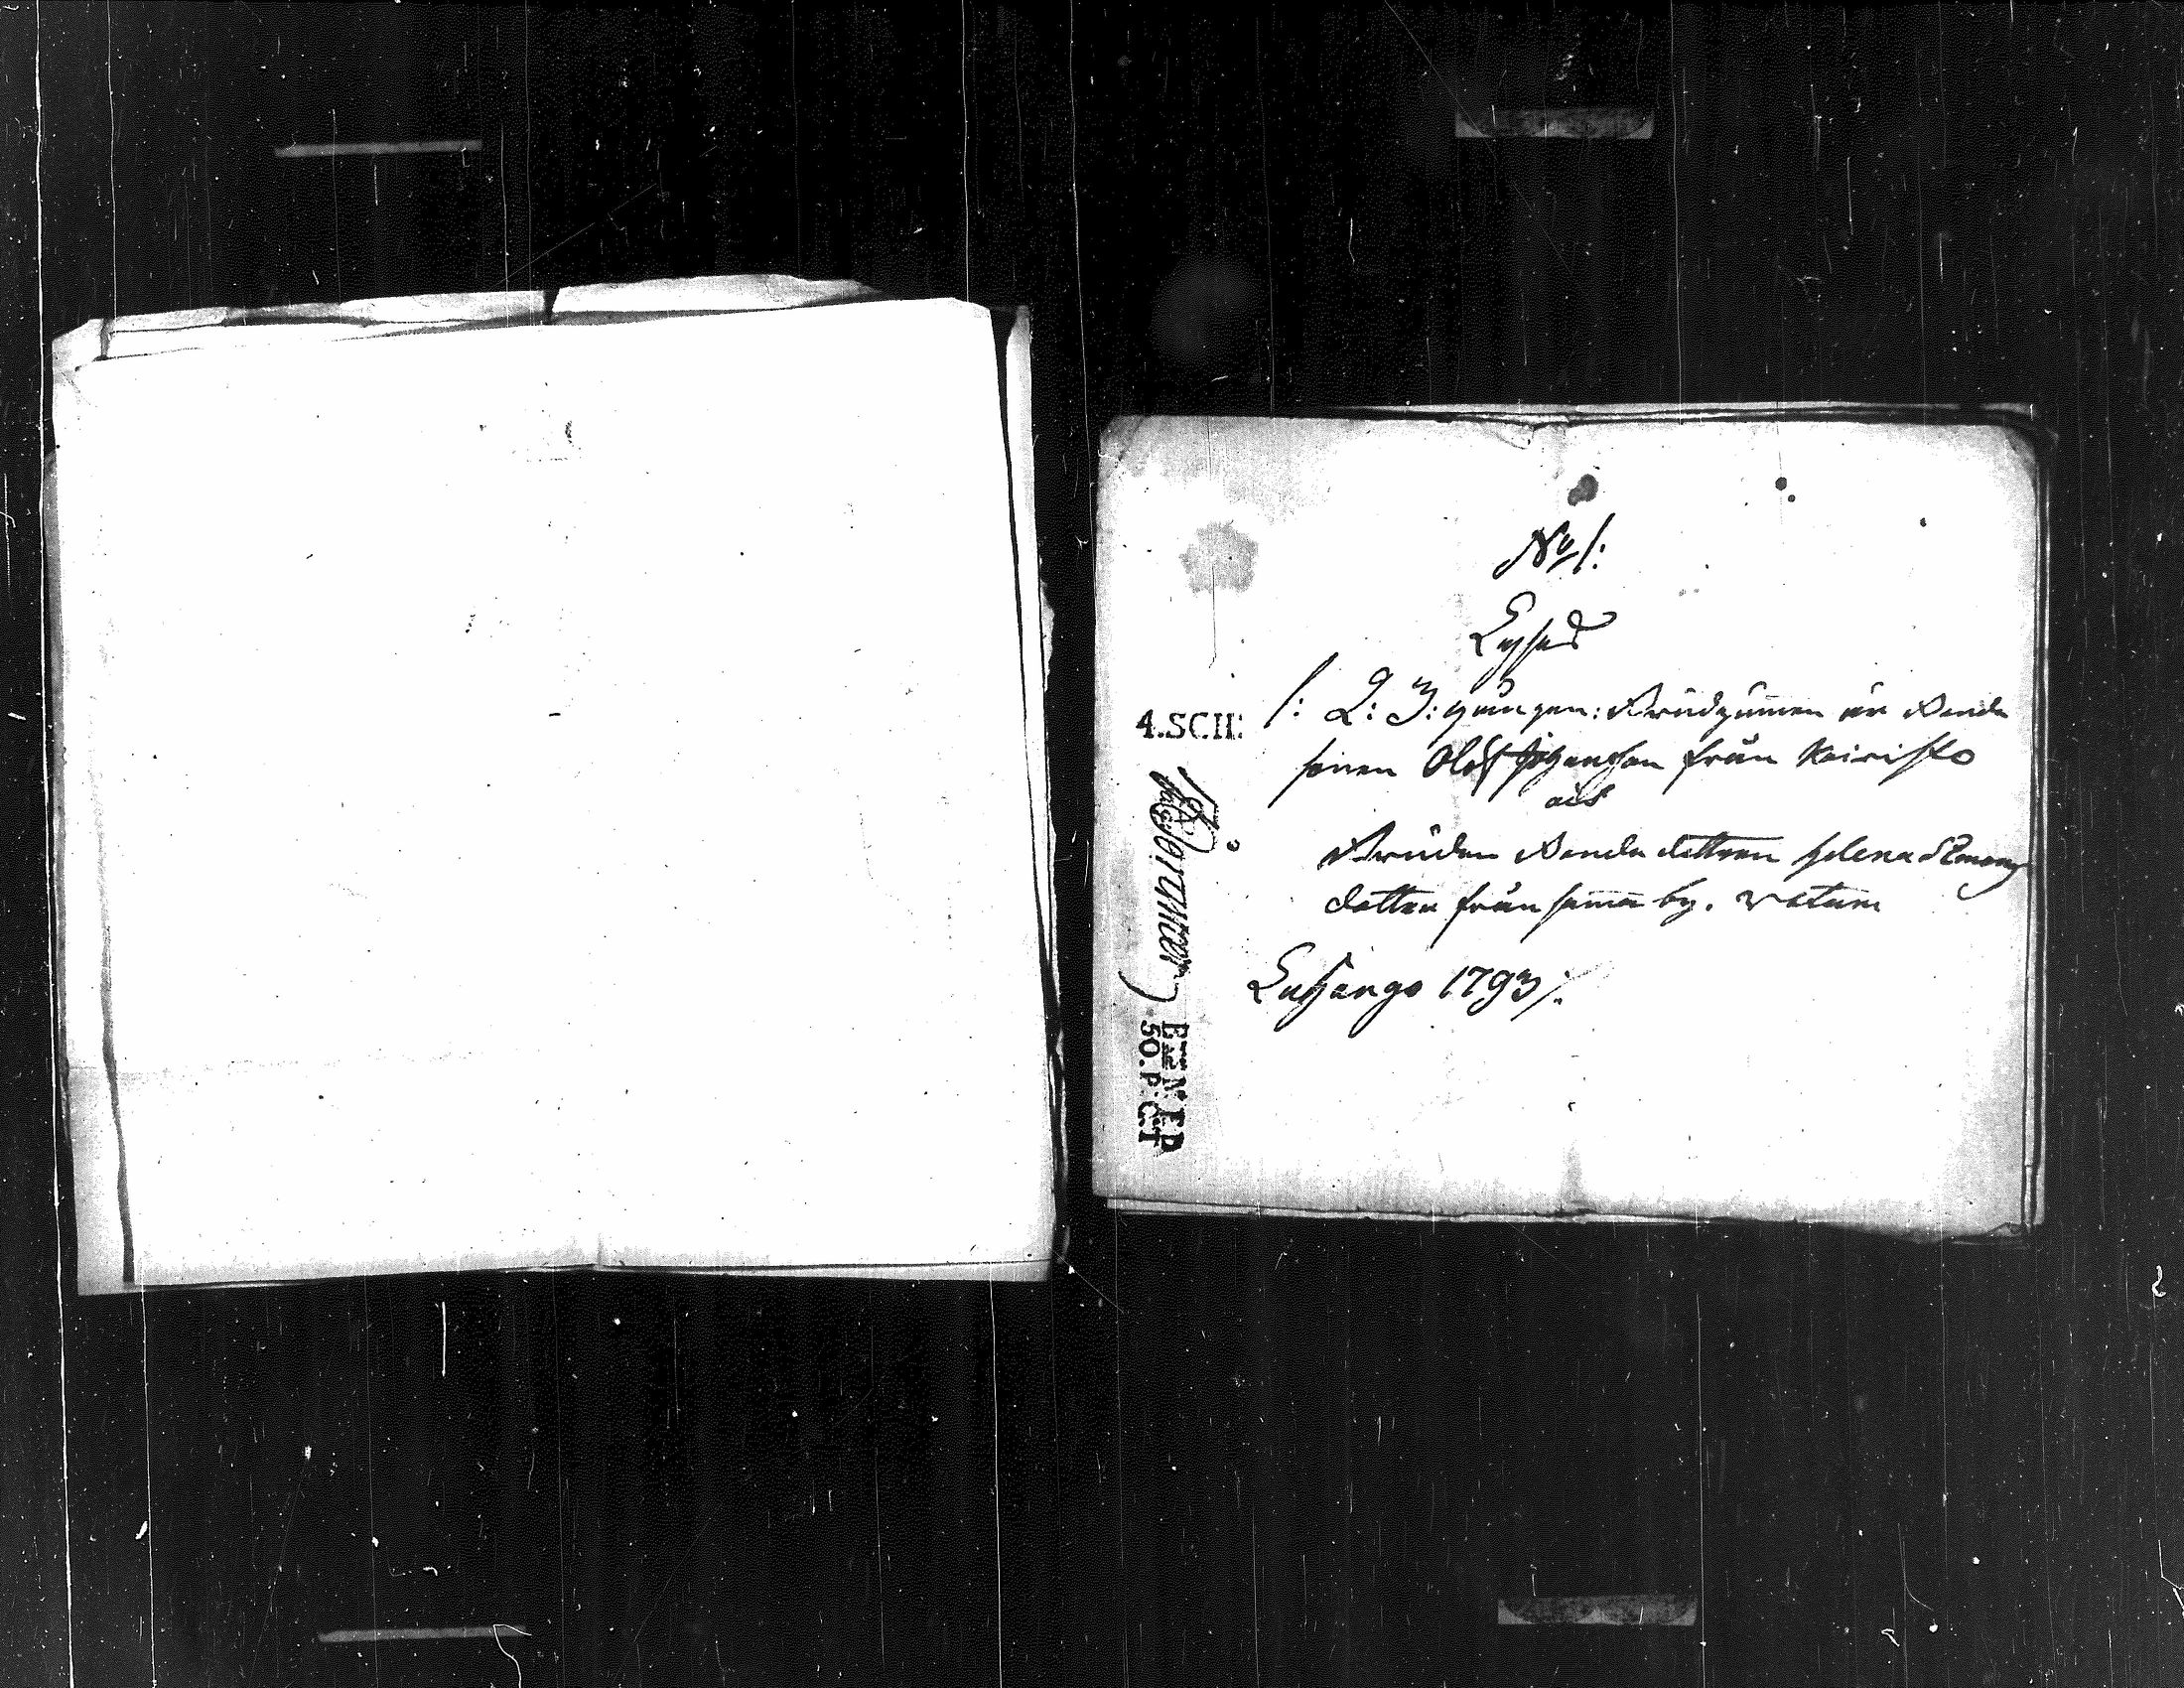 No 1:
Lyses
1: 2: 3: gången: Brudgumen är Bonde
sonen Olof Johansson från Kairisto
och
Bruden Bonde dottren Helena Simons
dotter från samma by.
4.SCH:
50. P: C:T
1793